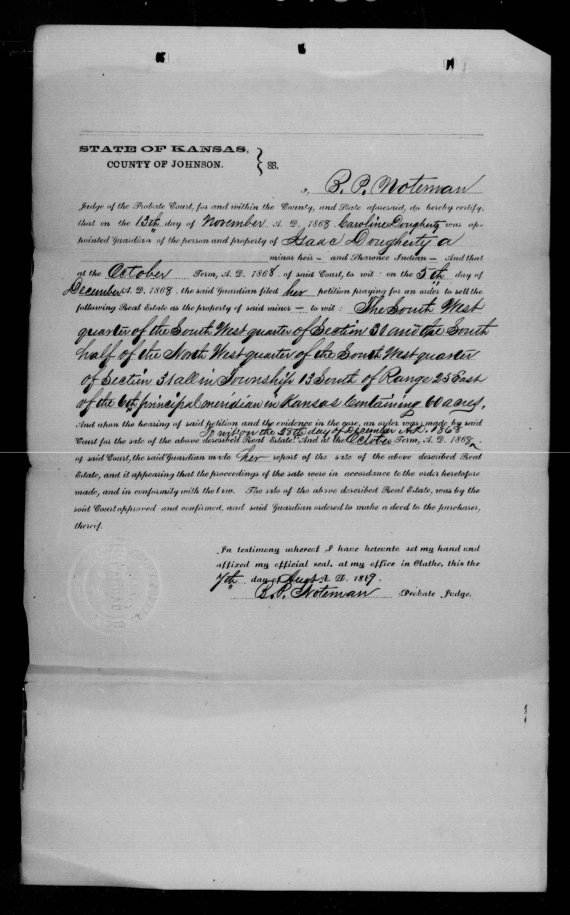 STATE OF KANSAS,
COUNTY OF JOHNSON. } ss.
I, B. P. Noteman
Judge of the Probate Court, for and within the County, and State aforesaid, do hereby certify,
that on the 13th day of November A. D. 1868 Caroline Dougherty was ap-
pointed Guardian of the person and property of Isaac Dougherty a
minor heir — and Shawnee Indian — And that
at the October Term, A. D. 1868. of said Court, to wit: on the 5th day of
December A. D. 1868. the said Guardian filed her petition praying for an order to sell the
following Real Estate as the property of said minor — to wit: The South West
quarter of the South West quarter of Section 31 and the South
half of the North West quarter of the South West quarter
of Section 31 all in Township 13 South of Range 25 East
of the 6th principal meridian in Kansas Containing 60 acres.
And upon the hearing of said petition and the evidence in the case, an order was made by said
To wit on the day of December A.D. 1868
Court for the sale of the above described Real Estate. And at the October Term, A. D. 1868
of said Court, the said Guardian made her report of the sale of the above described Real
Estate, and it appearing that the proceedings of the sale were in accordance to the order heretofore
made, and in conformity with the law. The sale of the above described Real Estate, was by the
said Court approved and confirmed, and said Guardian ordered to make a deed to the purchaser,
thereof.
In testimony whereof I have hereunto set my hand and
affixed my official seal, at my office in Olathe, this the
7th day of Augt A. D. 1869.
B. P. Noteman Probate Judge.